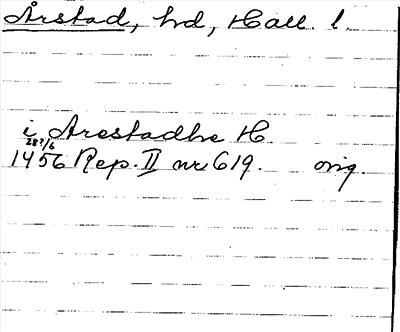 Årstad, hd, Hall. l.
i Arestadhe H
28?/6
1456 Rep. II nr 619. orig.